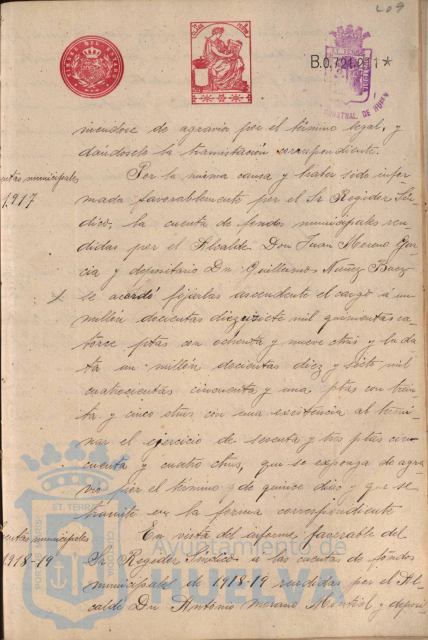 209
B.0.721.211*
niendose de agravio por el término legal, y
dándosele la tramitación correspondiente.
Por la misma causa y haber sido infor
cuentas municipales
1917
mada favorablemente por el Sr Regidor Sín
dico, la cuenta de fondos municipales ren
didas por el Alcalde Don Juan Moreno Gar
cia y depositario Dn Guillermo Nuñez Baez
se acordó fijarlas ascendente el cargo á un
millón decientas diez y siete mil quinientas ca
torce ptas con ochenta y nueve ctms y la da
ta un millón decientas diez y siete mil
cuatrocientas cincuenta y una ptas con trein
ta y cinco ctms con una existencia al termi
nar el ejercicio de sesenta y tres ptas cin
cuenta y cuatro ctms, que se exponga de agra
vio por el término de quince dias y que se
tramite en la forma correspondiente
En vista del informe favorable del
cuentas municipales
1918-19
Sr Regidor Síndico á las cuentas de fondos
municipales de 1918-19 rendidas por el Al
calde Dn Antonio Moreno y depos
Ayuntamiento de
HUELVA